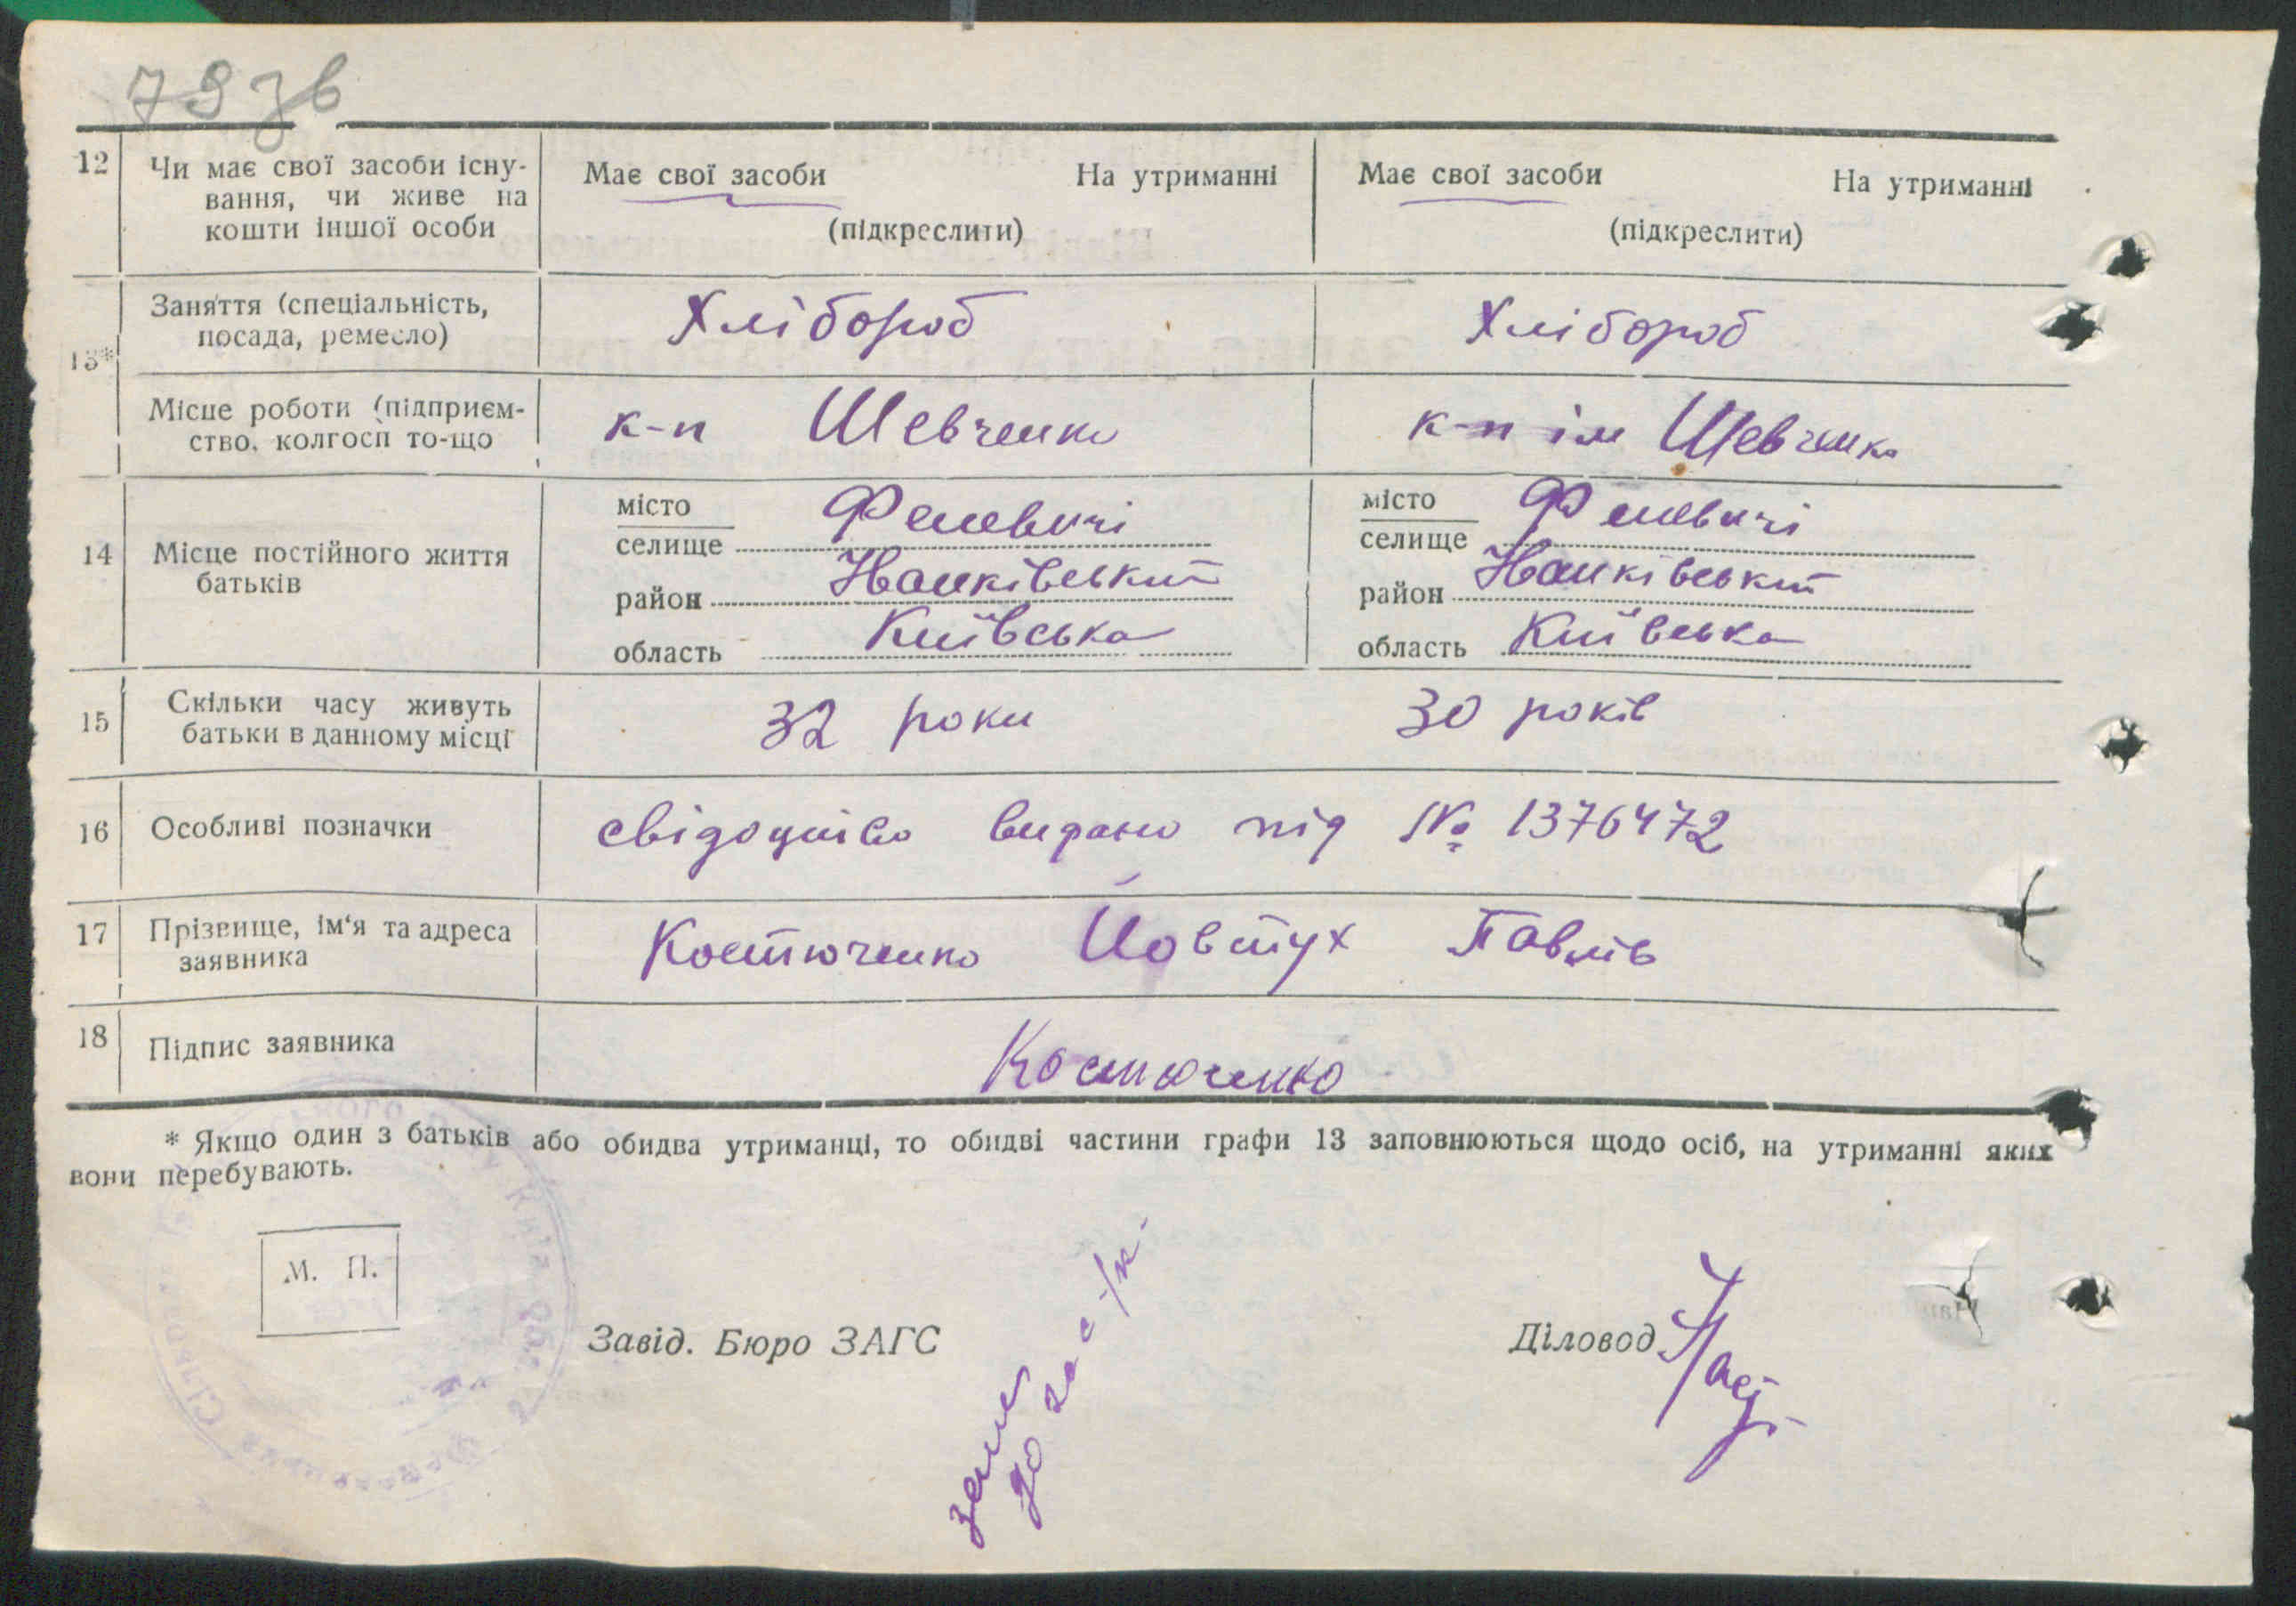 79 зв
12 Чи має свої засоби існу- Має свої засоби На утриманні Має свої засоби На утриманні
вання, чи живе на
кошти іншої особи (підкреслити) (підкреслити)
13* Заняття (спеціальність, Хлібороб Хлібороб
посада, ремесло)
Місце роботи (підприєм- к-п Шевченко к-п ім Шевченка
ство, колгосп то-що
14 Місце постійного життя батьків
місто Феневичі місто Феневичі
селище селище
район Іванківський район Іванківський
область Київська область Київська
15 Скільки часу живуть 32 роки 30 років
батьки в данному місці
16 Особливі позначки свідоцтво видано під № 1376472
17 Прізвище, ім'я та адреса Костюченко Йовтух Павлів
заявника
18 Підпис заявника Костюченко
* Якщо один з батьків або обидва утриманці, то обидві частини графи 13 заповнюються щодо осіб, на утриманні яких
вони перебувають.
М. П.
Завід. Бюро ЗАГС Діловод